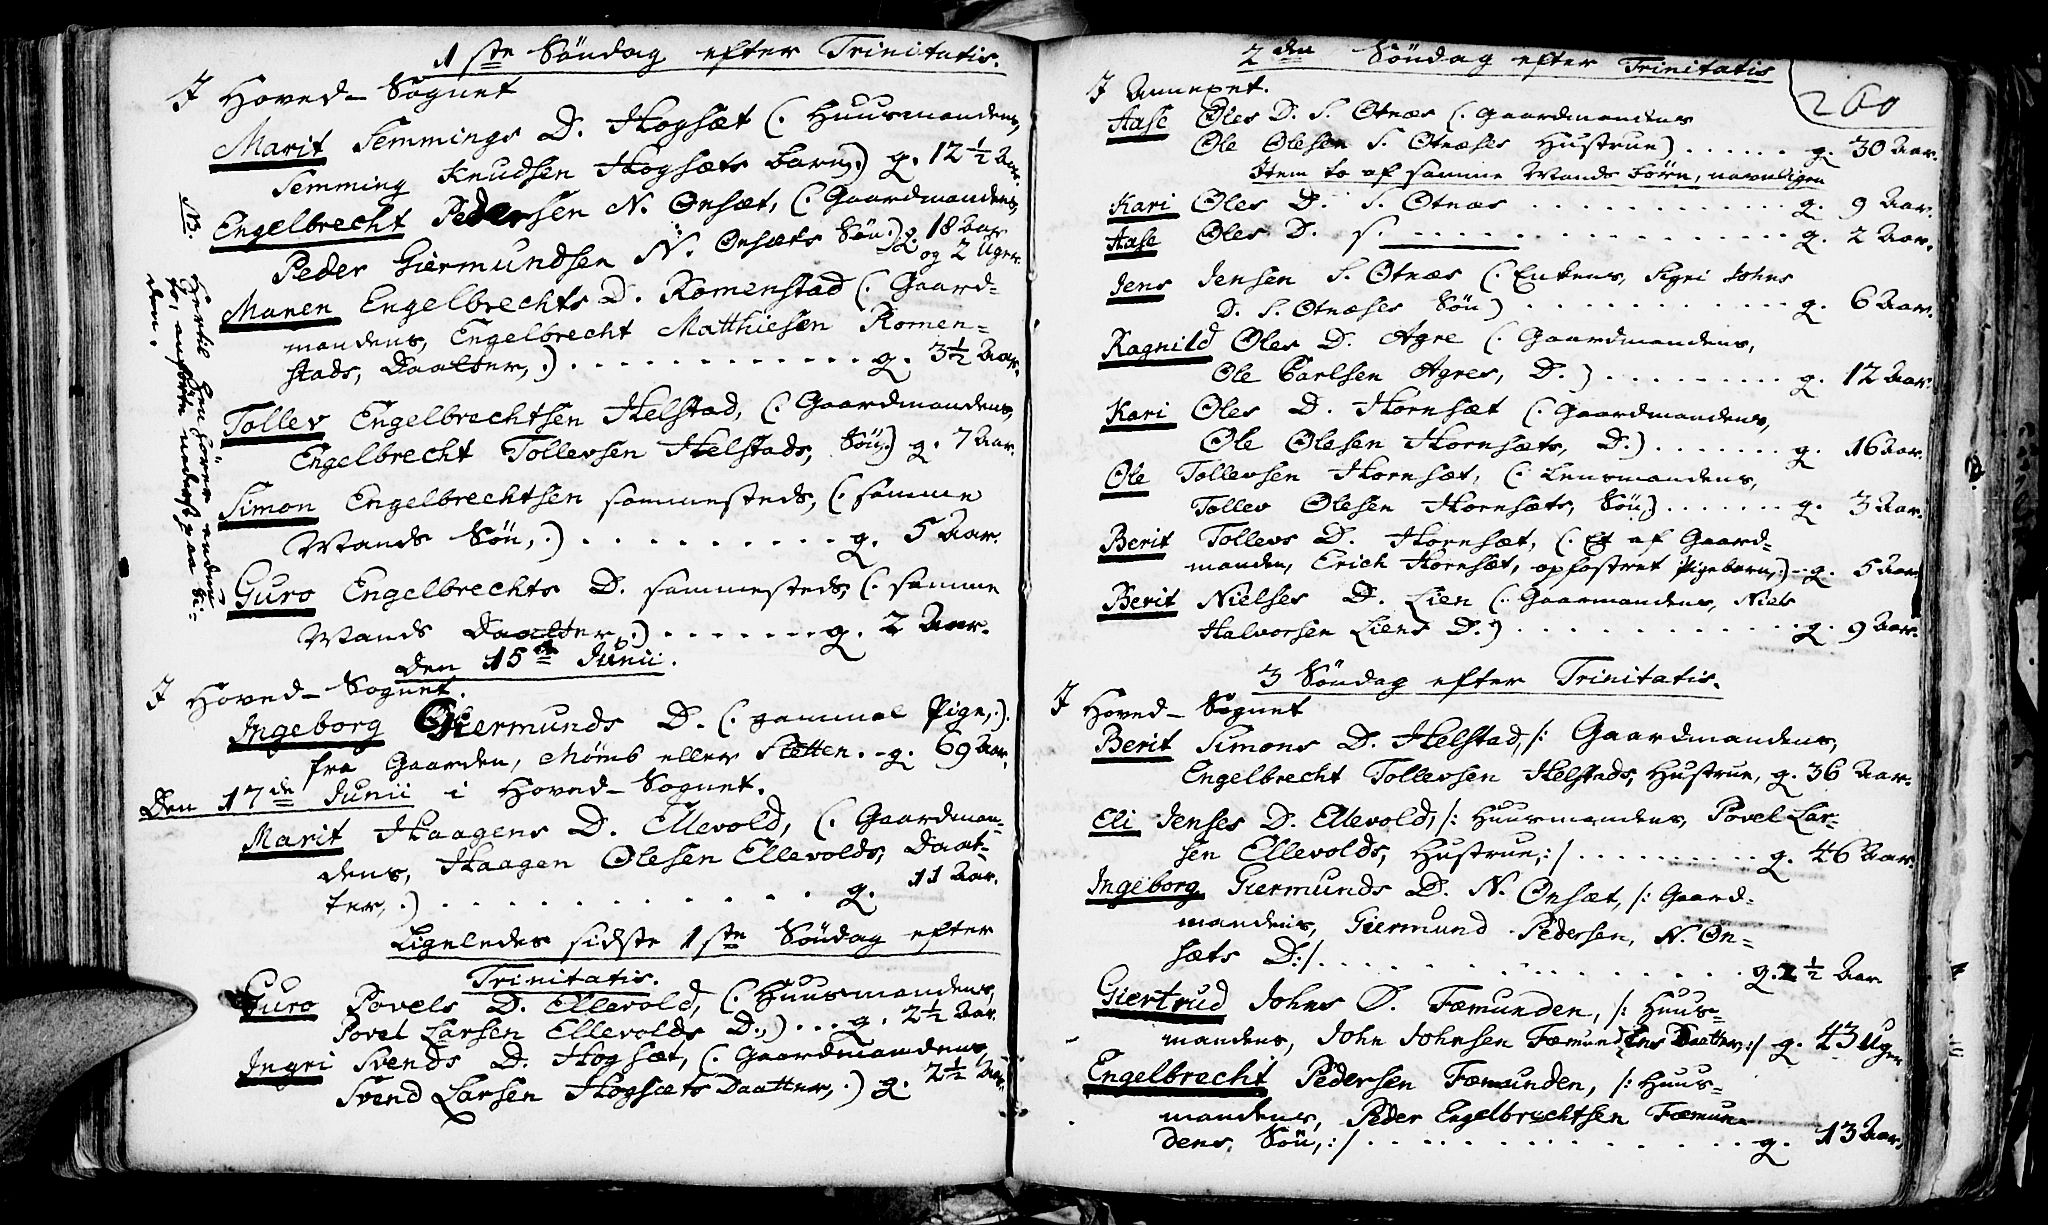 1ste Söndag efter Trinitatis.
J Hoved-Sognet
Marit Semmings D. Hogsæt (. Huusmandens,
Semming Knudsen Hogsæts barn,.) g. 12½ Aar.
Engelbrecht Pedersen N. Onsæt, (. Gaardmandens,
Peder Giermundsen N. Onsæts Sön.) g. 18 Aar og 2 Uger.
Maren Engelbrechts D. Romenstad (. Gaard-
mandens, Engelbrecht Matthiesen Romen-
stads, Daatter,.) . . . . . . . . . . . g. 3½ Aar.
Tollev Engelbrechtsen Helstad, (. Gaardmandens,
Engelbrecht Tollevsen Helstads, Sön.) g. 7 Aar.
Simon Engelbrechtsen sammesteds, (. samme
Mands Sön,.) . . . . . . . . . . g. 5 Aar.
Guro Engelbrechts D. sammesteds, (. samme
Mands Daatter,.) . . . . . . . g. 2 Aar.
NB. Hertil hen hörer endnu
to, anförte nederst paa Si-
den.
Den 15de Junii.
J Hoved-Sognet.
Ingeborg Giermunds D. (. gammel Pige,.)
fra Gaarden, Mömb eller Sletten. - g. 69 Aar.
Den 17de Junii i Hoved-Sognet.
Marit Haagens D. Ellevold, (. Gaardman-
dens, Haagen Olesen Ellevolds, Daat-
ter,.) . . . . . . . . . . . . . g. 11 Aar.
Ligeledes sidste 1ste Söndag efter
Trinitatis.
Guro Povels D. Ellevold, (. Huusmandens,
Povel Larsen Ellevolds D.,) . . . g. 2½ Aar.
Ingri Svends D. Hogsæt, (. Gaardmandens,
Svend Larsen Hogsæts Daatter,.) g. 2½ Aar.
2den Söndag efter Trinitatis
200
J Annexet.
Aase Oles D. S. Otnæs (. Gaardmandens
Ole Olesen S. Otnæses Hustrue) . . . . . g. 30 Aar.
Item to af samme Mands börn, navnligen
Kari Oles D. S. Otnæs . . . . . . . . . . . g. 9 Aar.
Aase Oles D. S. . . . . . . . . . . . . . . g. 2 Aar.
Jens Jensen S. Otnæs (. Enkens, Sigri Johns
D. S. Otnæses Sön) . . . . . . . . . . . g. 6 Aar.
Ragnild Oles D. Agre (. Gaardmandens,
Ole Carlsen Agres, D.) . . . . . . . . . g. 12 Aar.
Kari Oles D. Hornsæt (. Gaardmandens,
Ole Olesen Hornsæts, D.) . . . . . . . g. 16 Aar.
Ole Tollevsen Hornsæt, (. Lensmandens,
Tollev Olesen Hornsæts, Sön,) . . . . . . . g. 3 Aar.
Berit Tollevs D. Hornsæt, (. Et af Gaard-
manden, Erich Hornsæt, opfostret Pigebarn,.) - g. 5 Aar
Berit Nielses D. Lien (. Gaarmandens, Niels
Halvorsen Liens D.) . . . . . . . . . . . g. 9 Aar.
3 Söndag efter Trinitatis.
J Hoved-Sognet
Berit Simons D. Helstad, /: Gaardmandens,
Engelbrecht Tollevsen Helstads, Hustrue, g. 36 Aar.
Eli Jenses D. Ellevold, /: Huusmandens, Povel Lar-
sen Ellevolds, Hustrue,:/ . . . . . . . . . . g. 46 Aar.
Ingeborg Giermunds D. N. Onsæt, /: Gaard-
mandens, Giermund Pedersen, N. On-
sæts D:/ . . . . . . . . . . . . . . g. 1½ Aar
Giertrud Johns D. Fæmunden, /: Huus-
mandens, John Johnsen Fæmundens Daatter:/ g. 43 Uger
Engelbrecht Pedersen Fæmunden, /: Huus-
mandens, Peder Engelbrechtsen Fæmun-
dens, Sön,:/ . . . . . . . . . . . . . . g. 13 Aar.